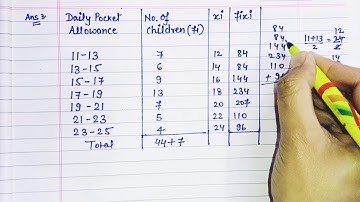 Ans 3
Daily Pocket Allowance | No. of children (fi) | xi | fixi
11-13 | 7 | 12 | 84
13-15 | 6 | 14 | 84
15-17 | 9 | 16 | 144
17-19 | 13 | 18 | 234
19-21 | 7 | 20 | 207
21-23 | 5 | 22 | 110
23-25 | 4 | 24 | 96
Total | 44+7
84
84
144
234
110
11+13 / 2 = 24 / 2
12
14